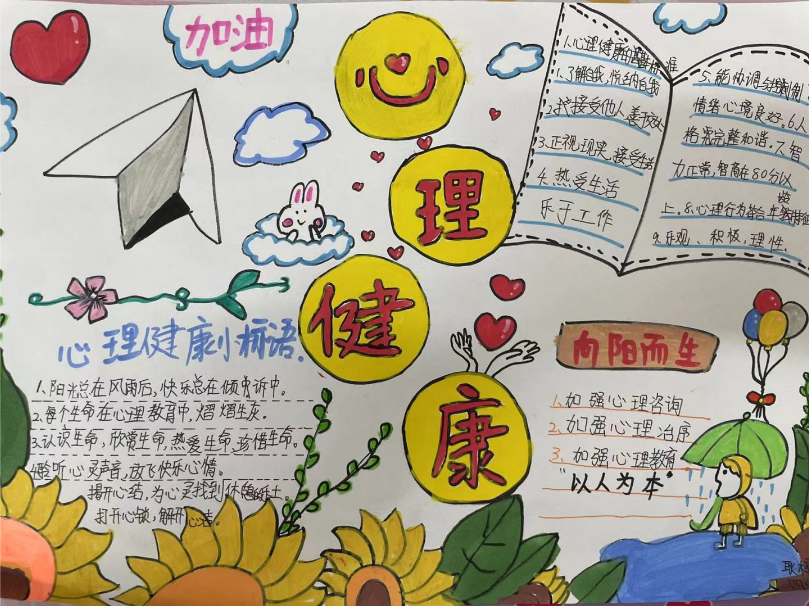 加油
心理健康
1.心理健康的
1.了解自我、悦纳自我
2.接受他人,善与人
3.正视现实,接受
4.热爱生活
乐于工作
5.能协调与控制
情绪心境良好.6.人
格完整和谐.7.智
力正常,智商在80分以
上.8.心理行为符合年龄特征
9.乐观、积极,理性
心理健康小标语.
1.阳光总在风雨后,快乐总在倾诉中。
2.每个生命在心理教育中,熠熠生灰。
3.认识生命,欣赏生命,热爱生命,珍惜生命。
4.聆听心灵声音,放飞快乐心情。
揭开心结,为心灵找到休憩
打开心锁,解开心结。
向阳而生
1.加强心理咨询
2.加强心理治序
3.加强心理教育
"以人为本"